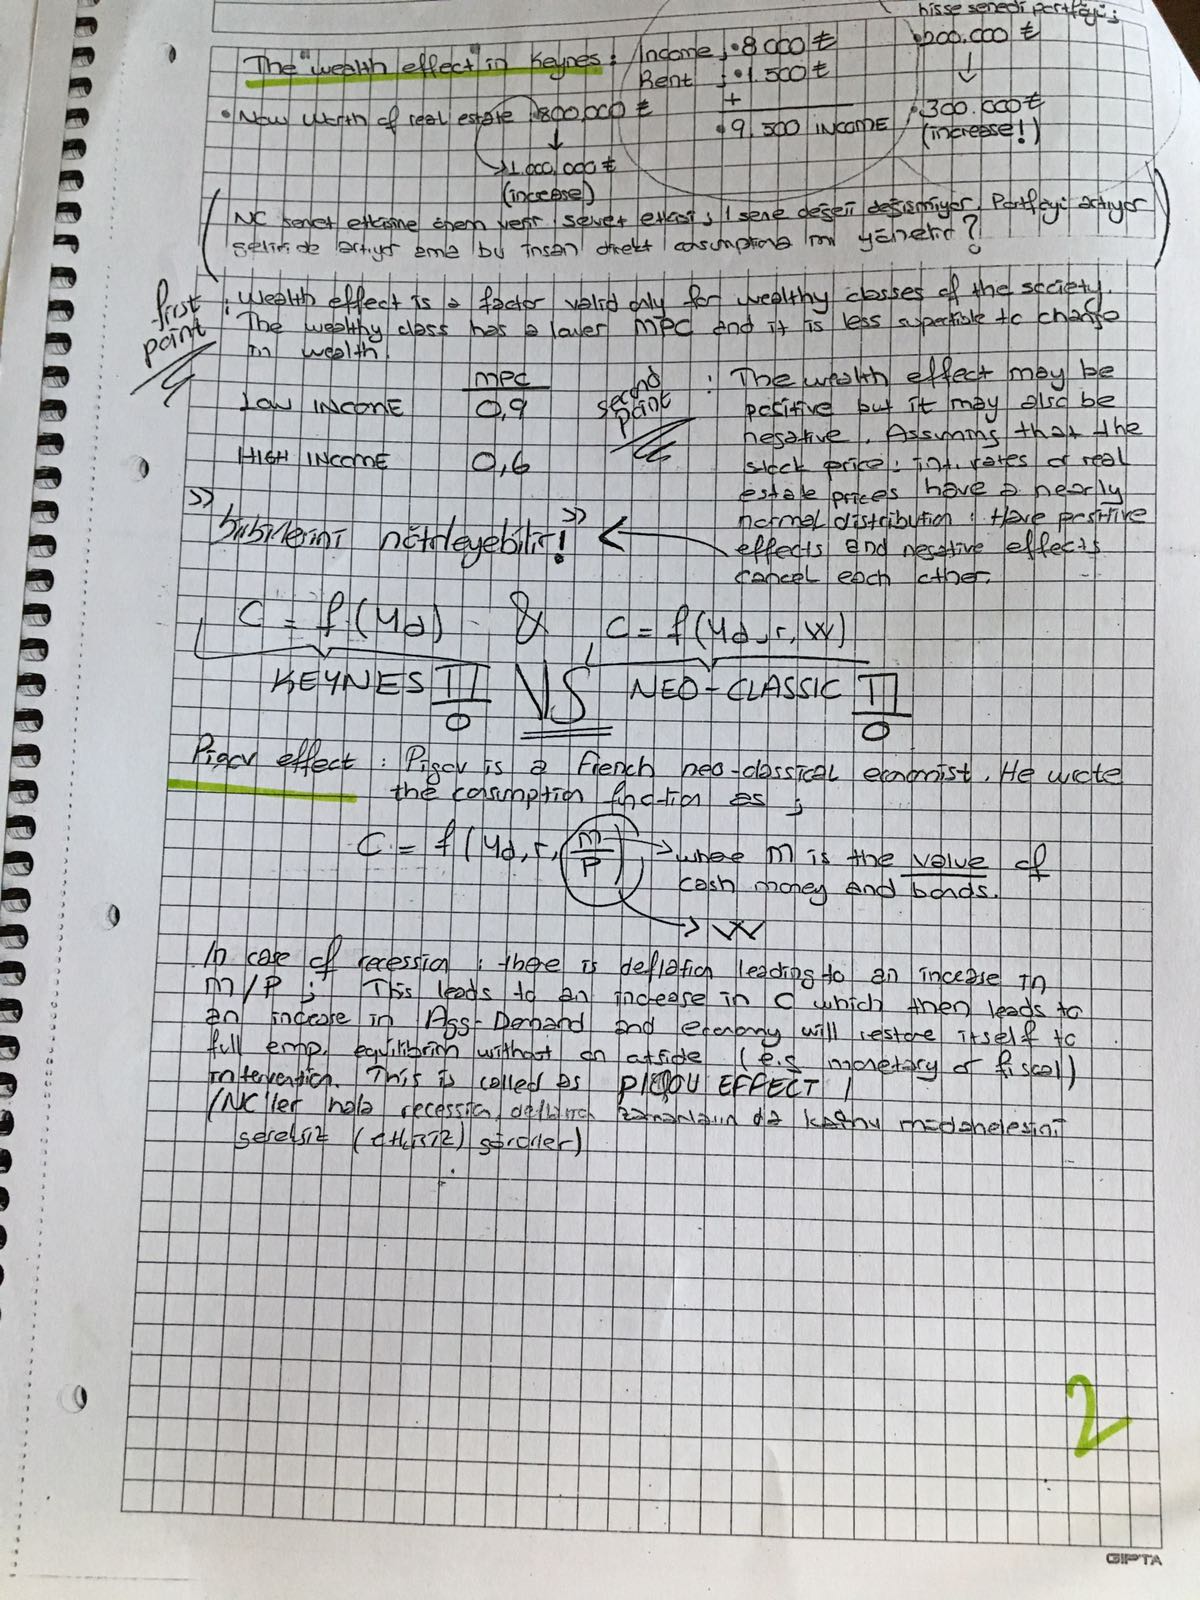 hisse senedi portföyü;
The "wealth effect" in Keynes: Income; • 8 000 ₺ • 200.000 ₺
Rent ; • 1.500 ₺
+
• Now worth of real estate 800,000 ₺ • 9,500 INCOME • 300.000 ₺
(increase!)
→ 1.000,000 ₺
(increase)
(NC servet etkisine önem verir. Servet etkisi; 1 sene değeri değişmiyor. Portföyü artıyor
geliri de artıyor ama bu insan direkt consumptiona mı yönelir?)
first point : Wealth effect is a factor valid only for wealthy classes of the society.
The wealthy class has a lower MPC and it is less supectible to change
in wealth.
MPC
LOW INCOME 0,9
HIGH INCOME 0,6
second point : The wealth effect may be
positive but it may also be
negative. Assuming that the
stock price; int. rates or real
estate prices have a nearly
normal distribution; Have positive
effects and negative effects
cancel each other.
"birbilerini nötrleyebilir!"
C = f(Yd) & C = f(Yd, r, W)
KEYNES VS NEO-CLASSIC
0 0
Pigov effect : Pigov is a French neo-classical economist. He wrote
the consumption function as ;
C = f(Yd, r, m/P) → where m is the value of
cash money and bonds.
→ W
In case of recession; there is deflation leading to an increase in
m/P ; This leads to an increase in C which then leads to
an increase in Agg-Demand and economy will restore itself to
full emp. equilibrium without an outside (e.g monetary or fiscal)
intervention. This is called as PIGOU EFFECT /
(NC'ler hala recession, deflation zamanlarında kamu müdahelesini
gereksiz (etkisiz) görürler)
2
GIPTA